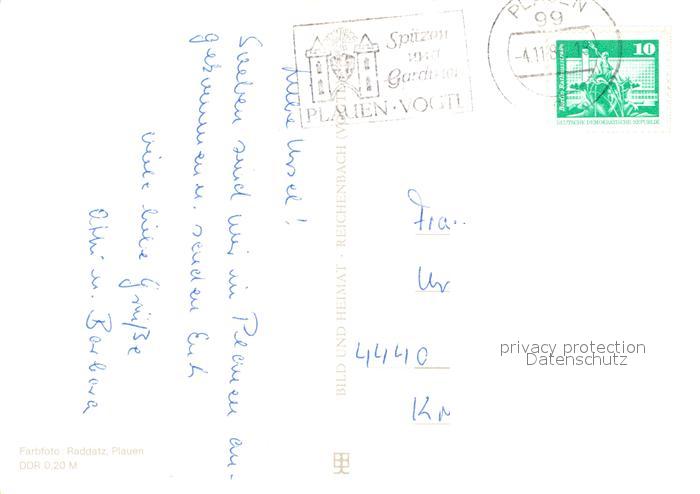 Meine Ursel!
Soeben sind wir in Plauen an-
gekommen u. senden Euch
viele liebe Grüße
Otti u. Barbara
Spitzen
und
Gardinen
PLAUEN · VOGTL
PLAUEN
99
-4.11.8
10
DEUTSCHE DEMOKRATISCHE REPUBLIK
BILD UND HEIMAT · REICHENBACH (VOGTL
Fra
Ur
4440
Kr
privacy protection
Datenschutz
Farbfoto: Raddatz, Plauen
DDR 0,20 M